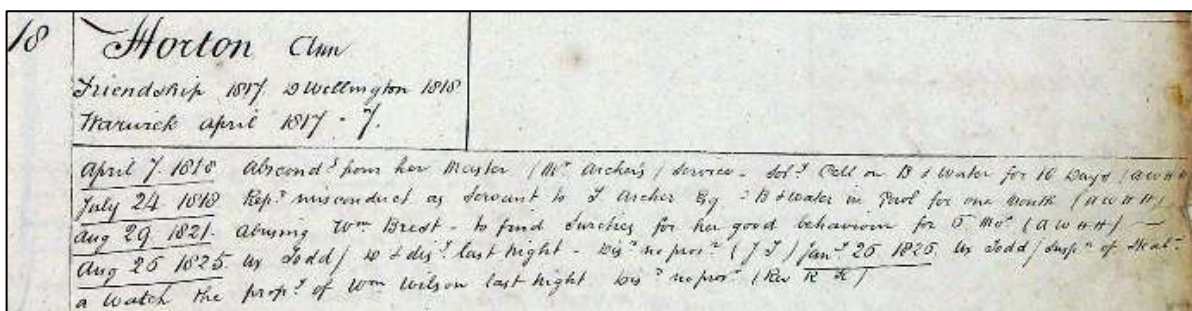 18
Horton Ann
Friendship 1817. D Wellington 1818
Warwick april 1817 - 7.
April 7. 1818 Abscond.g from her Master (Mr Archer's) service - Sol.y Cell on B & Water for 10 Days (AWHH)
July 24 1818 Rep.d misconduct as Servant to T Archer Esq - B & Water in Gaol for one month (AWHH)
Aug 29 1821. abusing Wm Brest - to find Sureties for her good behaviour for Mo.s (AWHH) —
Aug 25 1825. as Todd / D & dis.y last night - Dis.d no pros.r (J J) Jan.y 25 1826. as Todd / Susp.n of Steal.g
a watch the prop.y of Wm Wilson last night Dis.d no pros.r (Rev R K)